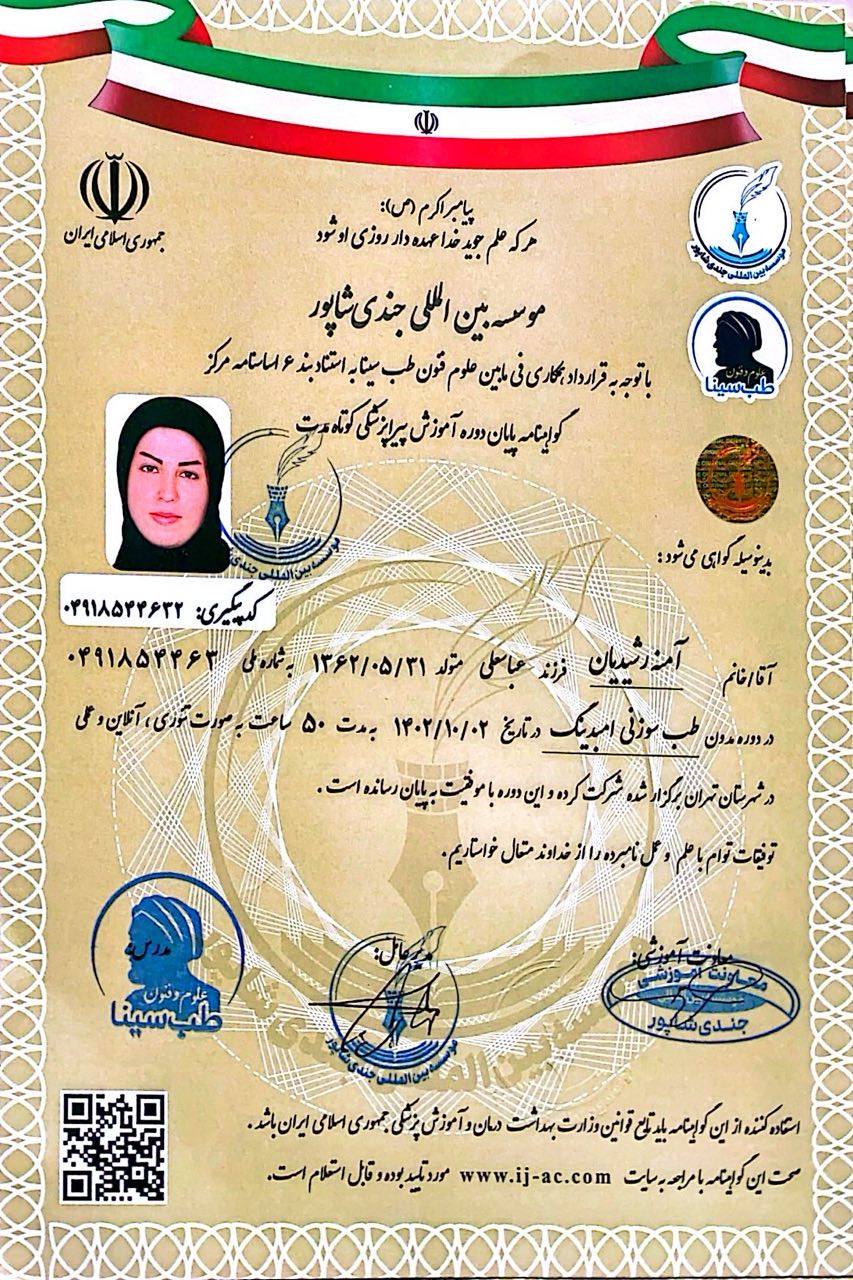 جمهوری اسلامی ایران
پیامبر اکرم (ص):
هر که علم جوید خدا عهده دار روزی او شود
موسسه بین المللی جندی شاپور
موسسه بین المللی جندی شاپور
علوم و فنون
طب سینا
با توجه به قرارداد همکاری فی مابین علوم فنون طب سینا به استناد بند ۶ اساسنامه مرکز
گواهینامه پایان دوره آموزش پیراپزشکی کوتاه مدت
موسسه بین المللی جندی
بدینوسیله گواهی می شود:
کد پیگیری: ۰۴۹۱۸۵۴۴۶۳۲
آقا/خانم آمنه رشیدیان فرزند عباسعلی متولد ۱۳۶۲/۰۵/۳۱ به شماره ملی ۰۴۹۱۸۵۴۴۶۳
در دوره مدون طب سوزنی امبدینگ در تاریخ ۱۴۰۲/۱۰/۰۲ به مدت ۵۰ ساعت به صورت تئوری، آنلاین و عملی
در شهرستان تهران برگزار شده شرکت کرده و این دوره با موفقیت به پایان رسانده است.
توفیقات توام با علم و عمل نامبرده را از خداوند متعال خواستاریم.
معاونت آموزشی:
معاونت آموزشی
جندی شاپور
مدیر عامل:
موسسه بین المللی جندی شاپور
مدرس:
علوم و فنون
طب سینا
استفاده کننده از این گواهینامه باید تابع قوانین وزارت بهداشت درمان و آموزش پزشکی جمهوری اسلامی ایران باشد.
صحت این گواهینامه با مراجعه به سایت www.ij-ac.com مورد تایید بوده و قابل استعلام است.